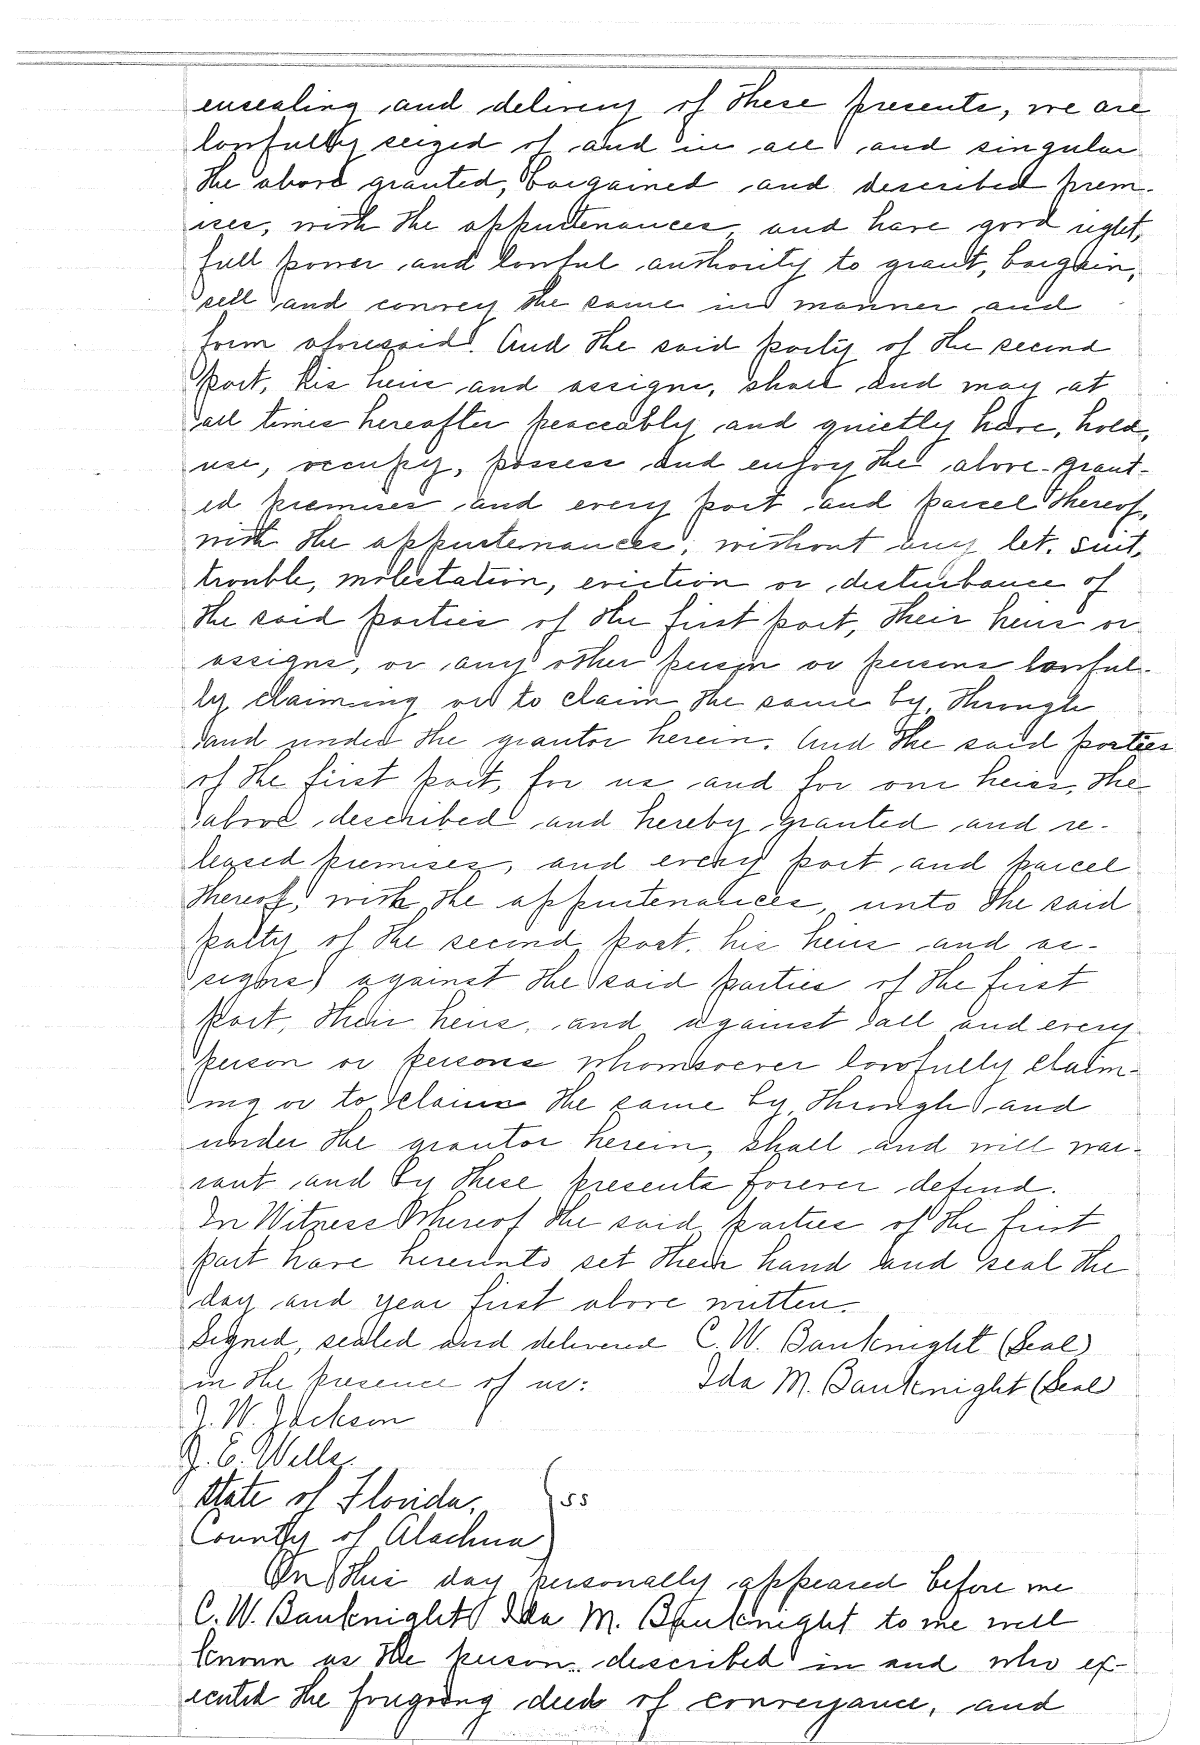 ensealing and delivery of these presents, we are
lawfully seized of and in all and singular
the above granted, bargained and described prem-
ises, with the appurtenances, and have good right,
full power and lawful authority to grant, bargain,
sell and convey the same in manner and
form aforesaid. And the said party of the second
part, his heirs and assigns, shall and may at
all times hereafter peaceably and quietly have, hold,
use, occupy, possess and enjoy the above-grant-
ed premises and every part and parcel thereof,
with the appurtenances, without any let, suit,
trouble, molestation, eviction or disturbance of
the said parties of the first part, their heirs or
assigns, or any other person or persons lawful-
ly claiming or to claim the same by, through
and under the grantor herein. And the said parties
of the first part, for us and for our heirs, the
above described and hereby granted and re-
leased premises, and every part and parcel
thereof, with the appurtenances, unto the said
party of the second part, his heirs and as-
signs, against the said parties of the first
part, their heirs, and against all and every
person or persons whomsoever lawfully claim-
ing or to claim the same by, through and
under the grantor herein, shall and will war-
rant and by these presents forever defend.
In Witness Whereof the said parties of the first
part have hereunto set their hand and seal the
day and year first above written.
Signed, sealed and delivered C. W. Bauknight (Seal)
in the presence of us: Ida M. Bauknight (Seal)
J. W. Jackson
J. E. Wells.
State of Florida, } ss
County of Alachua
On this day personally appeared before me
C. W. Bauknight Ida M. Bauknight to me well
known as the person described in and who ex-
ecuted the foregoing deed of conveyance, and